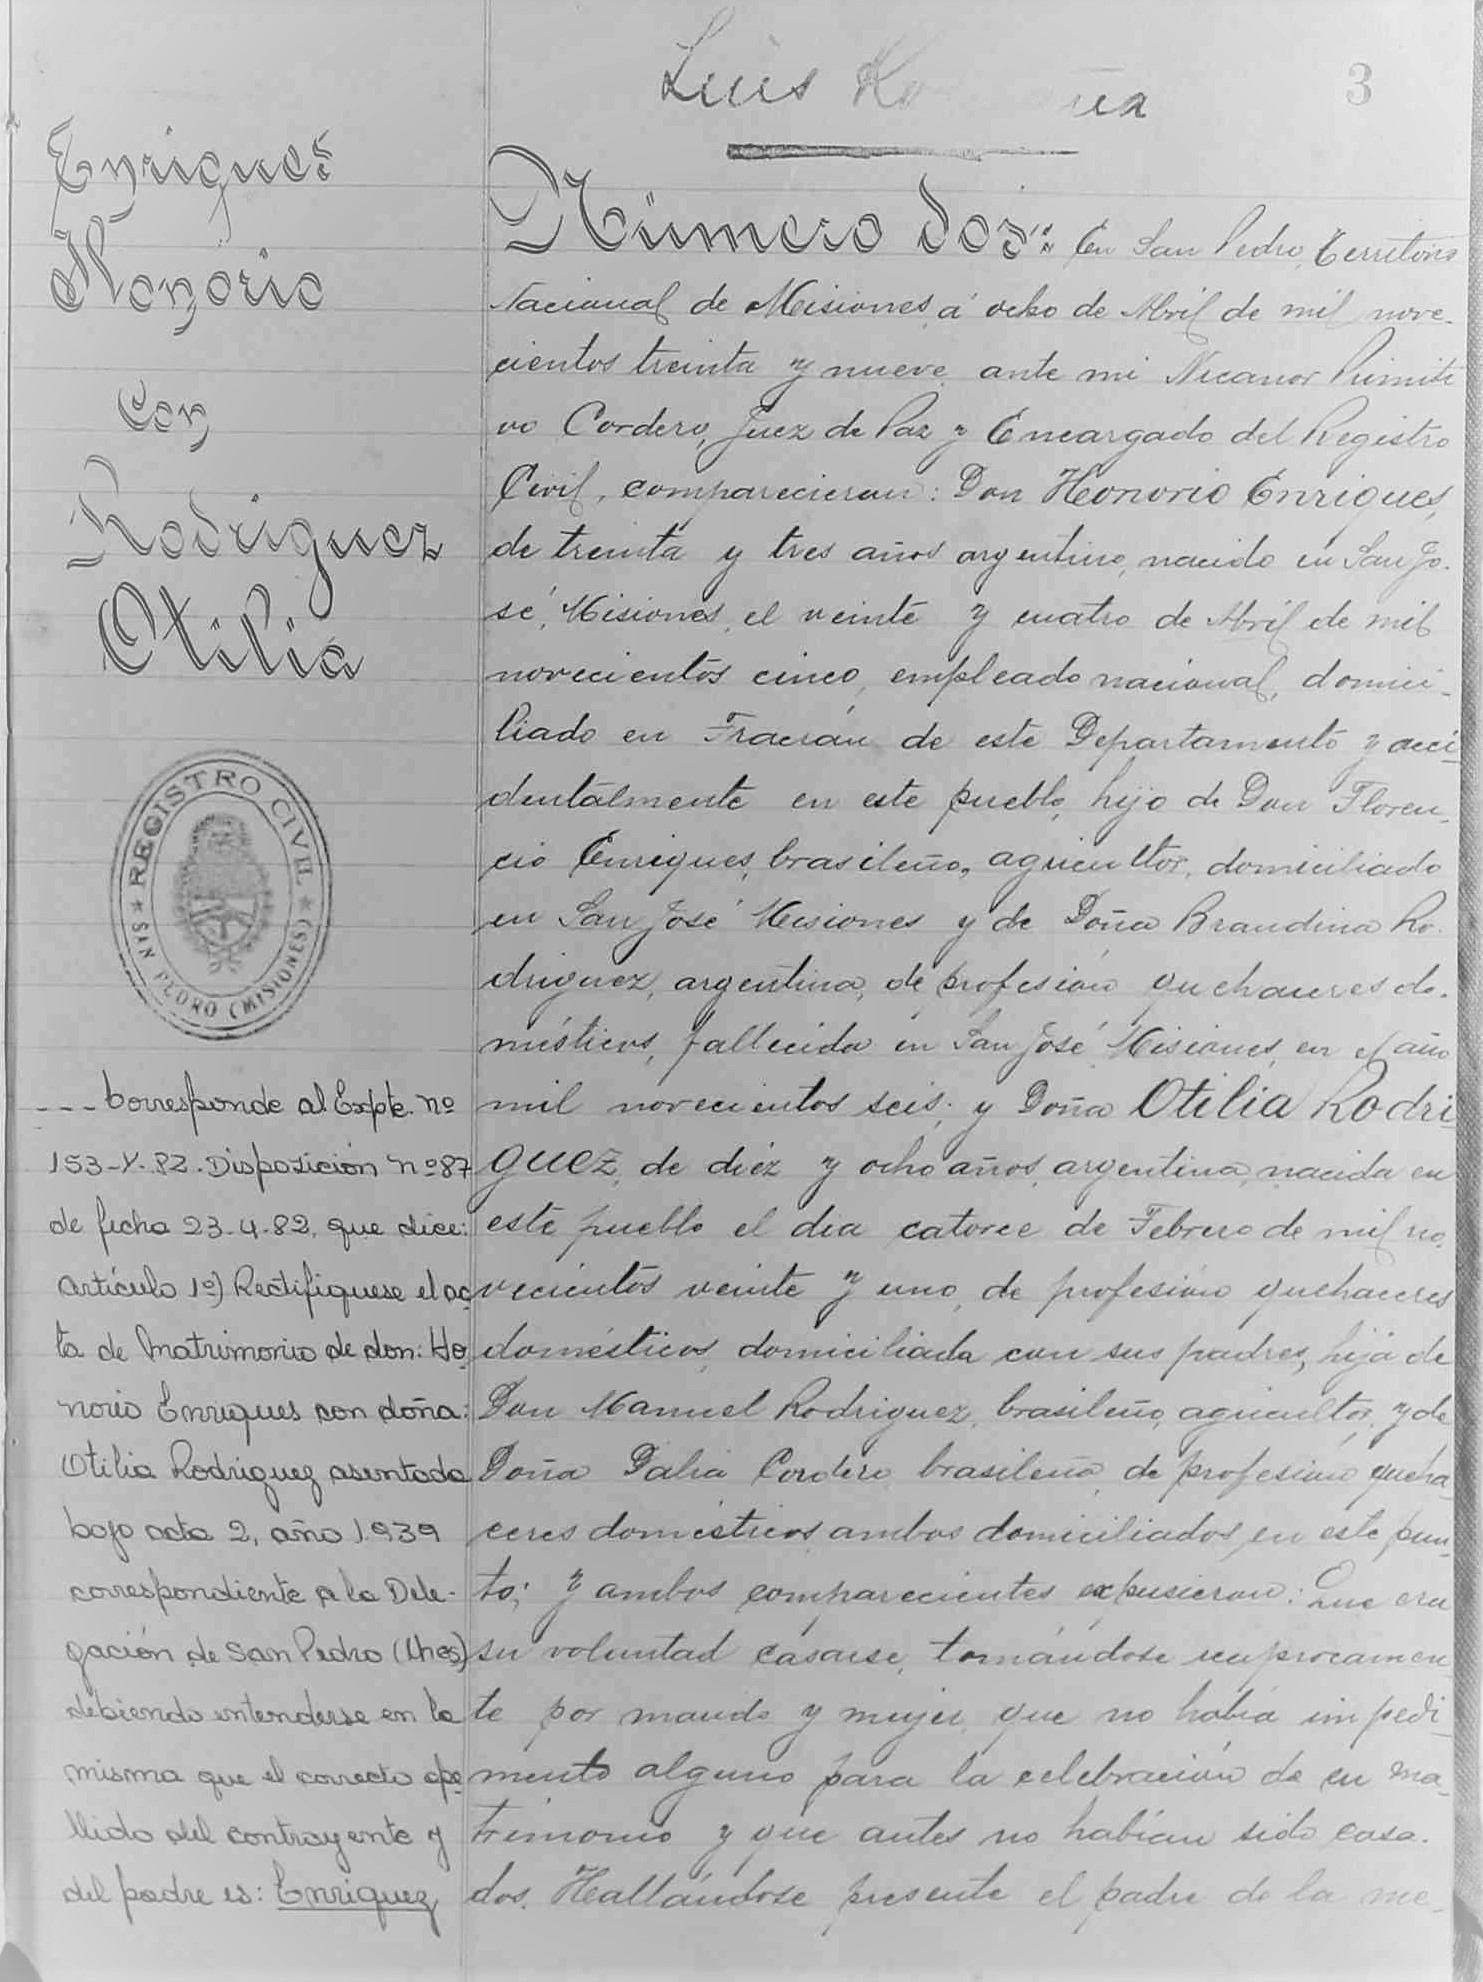 Luis
3
Enriques
Honorio
Con
Rodriguez
Otilia
REGISTRO CIVIL
SAN PEDRO (MISIONES)
--- Corresponde al Expte. nº
153-Y-82. Disposición nº 87
de fecha 23-4-82, que dice:
Artículo 1º) Rectifíquese el ac
ta de Matrimonio de don: Ho
norio Enriques con doña:
Otilia Rodriguez asentada
bajo acta 2, año 1939
correspondiente a la Dele-
gación de San Pedro (Mnes)
debiendo entenderse en la
misma que el correcto ape
llido del contrayente y
del padre es: Enriquez
Número dos: En San Pedro, Territorio
Nacional de Misiones á ocho de Abril de mil nove-
cientos treinta y nueve, ante mi Nicanor Primiti
vo Cordero, Juez de Paz y Encargado del Registro
Civil, comparecieron: Don Honorio Enriques,
de treinta y tres años argentino, nacido en San Jo-
sé, Misiones, el veinte y cuatro de Abril de mil
novecientos cinco, empleado nacional, domici-
liado en Fracrán de este Departamento y acci-
dentalmente en este pueblo, hijo de Don Floren-
cio Enriques, brasileño, agricultor, domiciliado
en San José Misiones y de Doña Brandina Ro-
driguez, argentina, de profesión quehaceres do-
mésticos, fallecida en San José Misiones, en el año
mil novecientos seis; y Doña Otilia Rodri
guez, de diéz y ocho años, argentina, nacida en
este pueblo el dia catorce de Febrero de mil no-
vecientos veinte y uno, de profesión quehaceres
domésticos, domiciliada con sus padres, hija de
Don Manuel Rodriguez, brasileño, agricultor, y de
Doña Dalia Cordero, brasileña, de profesión queha-
ceres domésticos ambos domiciliados en este pun-
to; y ambos comparecientes expusieron: Que era
su voluntad casarse, tomándose reciprocamen
te por marido y mujer, que no habia impedi-
mento alguno para la celebración de su ma-
trimonio y que antes no habían sido casa-
dos. Hallándose presente el padre de la me-